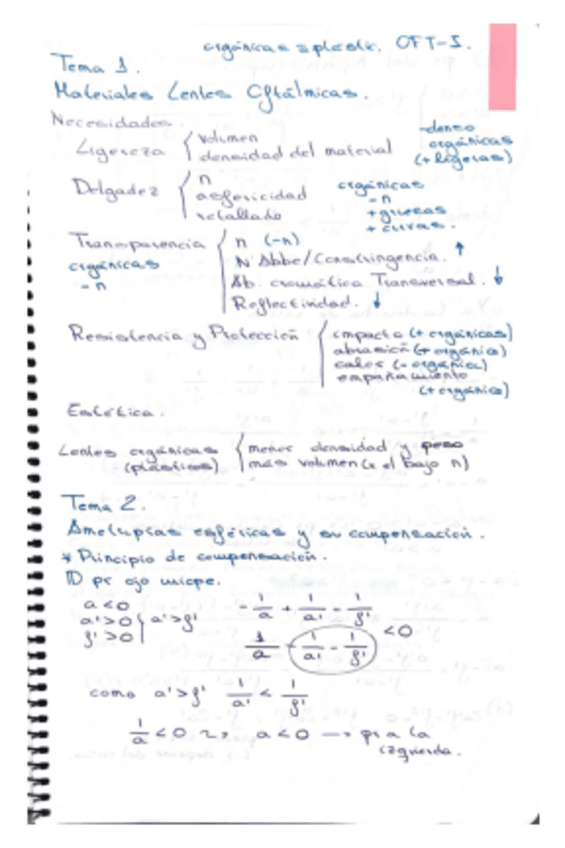 orgánicas = plástic. OFT-I.
Tema 1.
Materiales Lentes Oftálmicas.
Necesidades.
Ligereza { volumen
densidad del material
-denso
orgánicas
(+ ligeras)
Delgadez { n
asfericidad
retallado
orgánicas
- n
+ gruesas
+ curvas.
Transparencia { n (-n)
orgánicas
- n
Nº Abbe/Constringencia. ↑
Ab. cromática Transversal. ↓
Reflectividad. ↓
Resistencia y Protección { impacto (+ orgánicas)
abrasión (+ orgánica)
calor (- orgánica)
empañamiento
(+ orgánica)
Estética.
Lentes orgánicas { menor densidad y peso
(plásticos) más volumen (x el bajo n)
Tema 2.
Ametropías esféricas y su compensación.
* Principio de compensación.
1D pr ojo miope.
a<0
a'>0 } a'>f'
f'>0
-1/a + 1/a' - 1/f'
1/a - 1/a' - 1/f' <0
como a'>f' 1/a' < 1/f'
1/a <0 ~> a<0 → pr a la
izquierda.